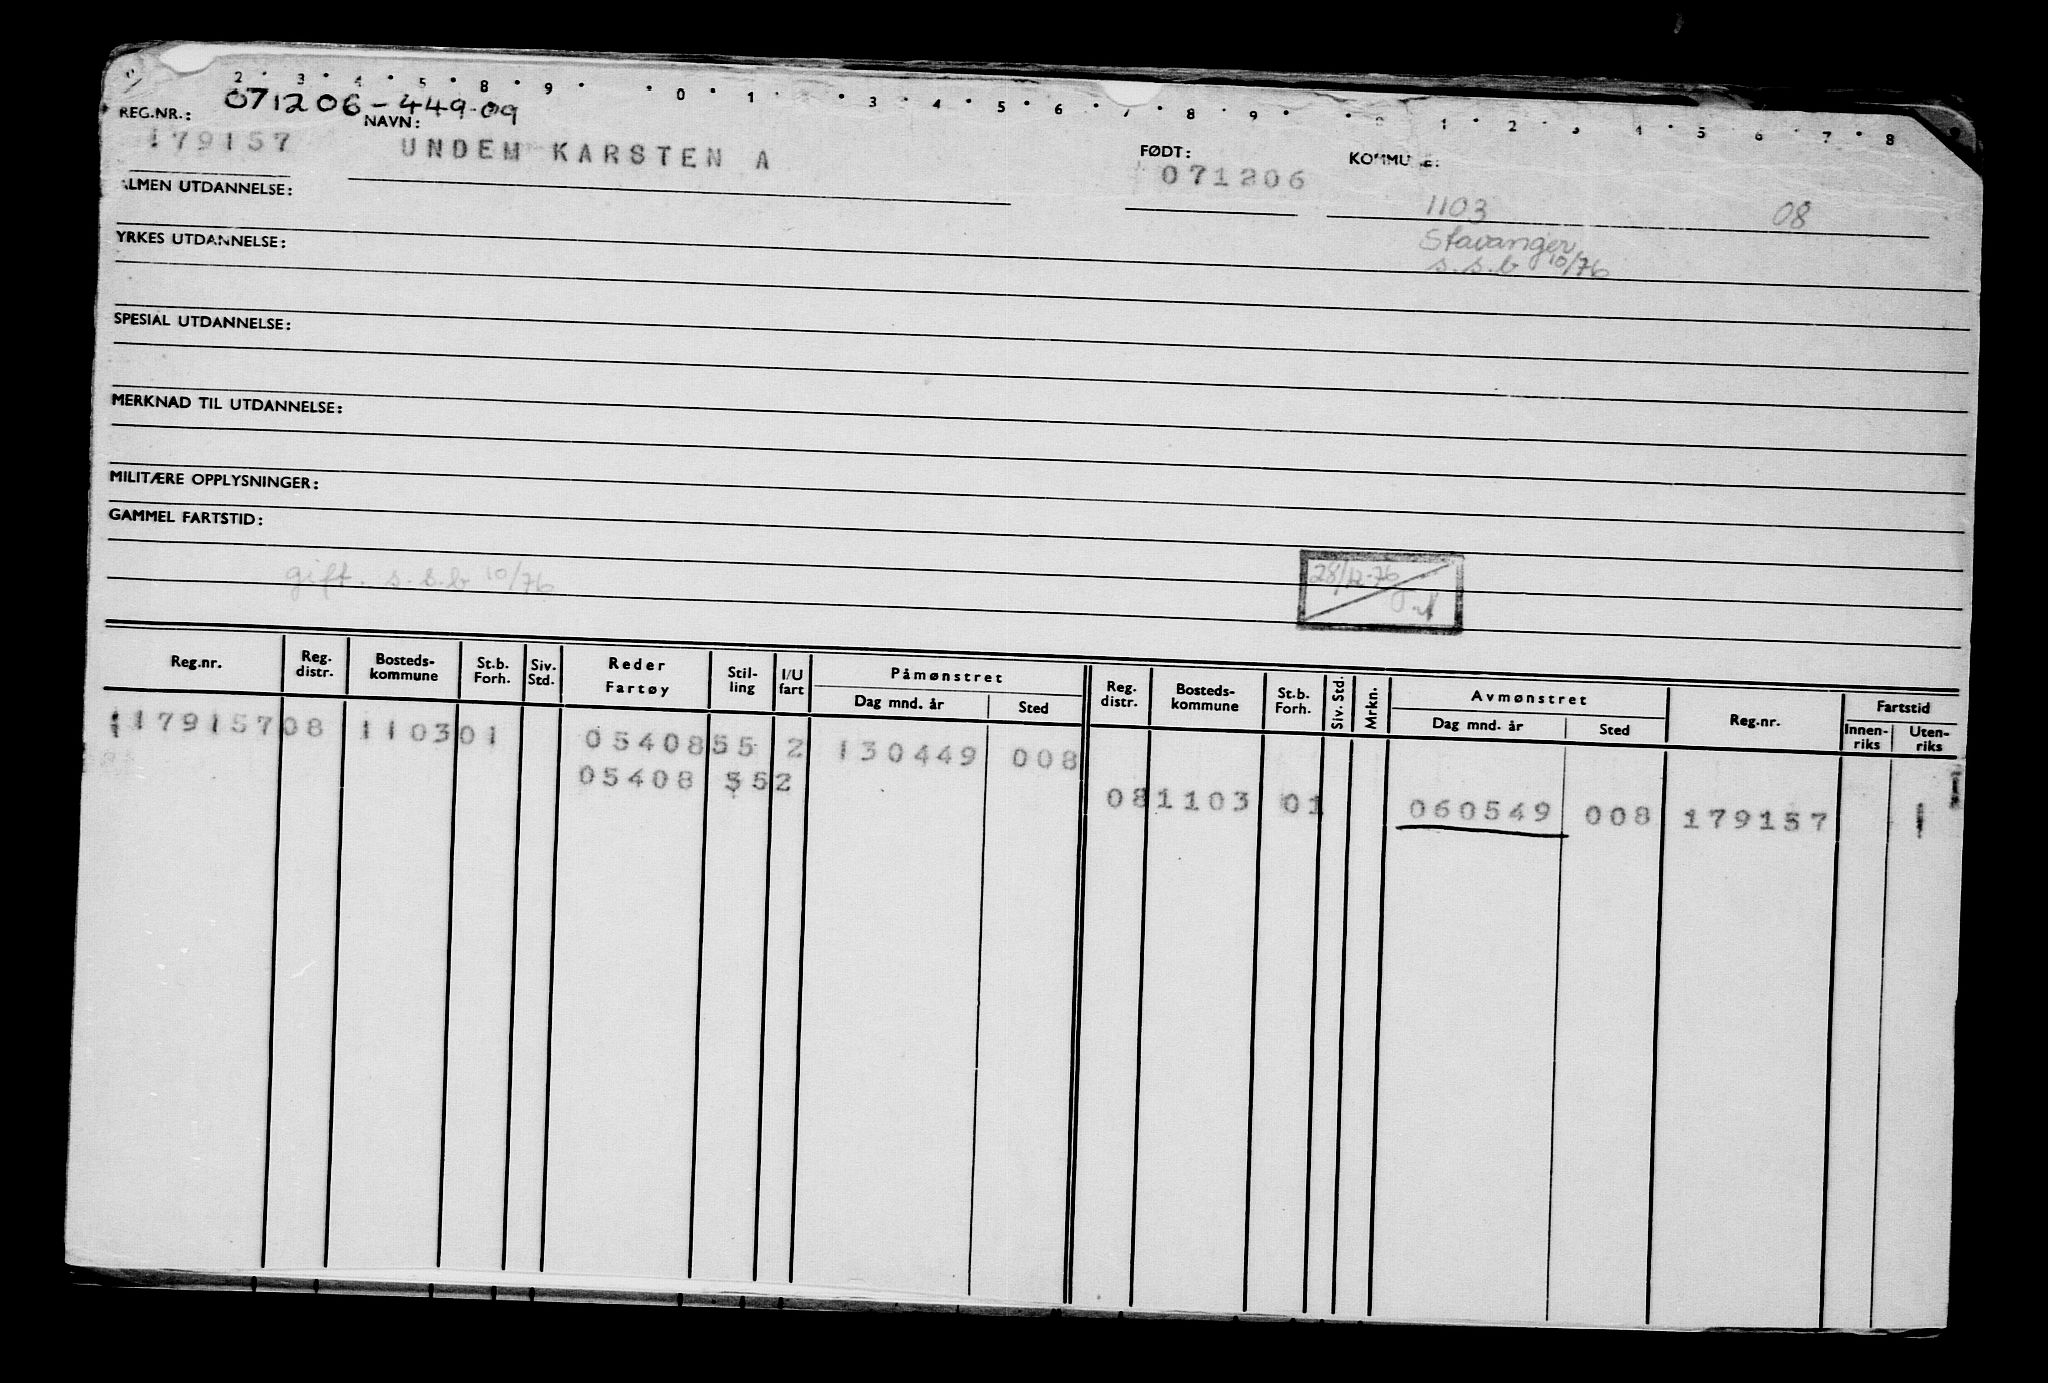 2 • 3 • 4 • 5 • 8 • 9 • • 0 • 1 • 2 • 3 • 4 • 5 • 6 • 7 • 8 • 9 • • 0 • 1 • 2 • 3 • 4 • 5 • 6 • 7 • 8 • 9
REG.NR.: 071206-449-09
NAVN: FØDT: KOMMUNE:
179157 UNDEM KARSTEN A 071206
ALMEN UTDANNELSE: 1103 08
YRKES UTDANNELSE: Stavanger
s.s.b 10/76
SPESIAL UTDANNELSE:
MERKNAD TIL UTDANNELSE:
MILITÆRE OPPLYSNINGER:
GAMMEL FARTSTID:
gift. s.s.b 10/76 28/12-76
Reg.nr. Reg. distr. Bosteds- kommune St.b. Forh. Siv. Std. Reder Fartøy Stil- ling I/U fart Påmønstret Dag mnd. år Sted Reg. distr. Bosteds- kommune St.b. Forh. Siv. Std. Mrkn. Avmønstret Dag mnd. år Sted Reg.nr. Fartstid Innen- riks Uten- riks
179157 08 1103 01 05408 55 2 130449 008
05408 55 2
08 1103 01 060549 008 179157 1